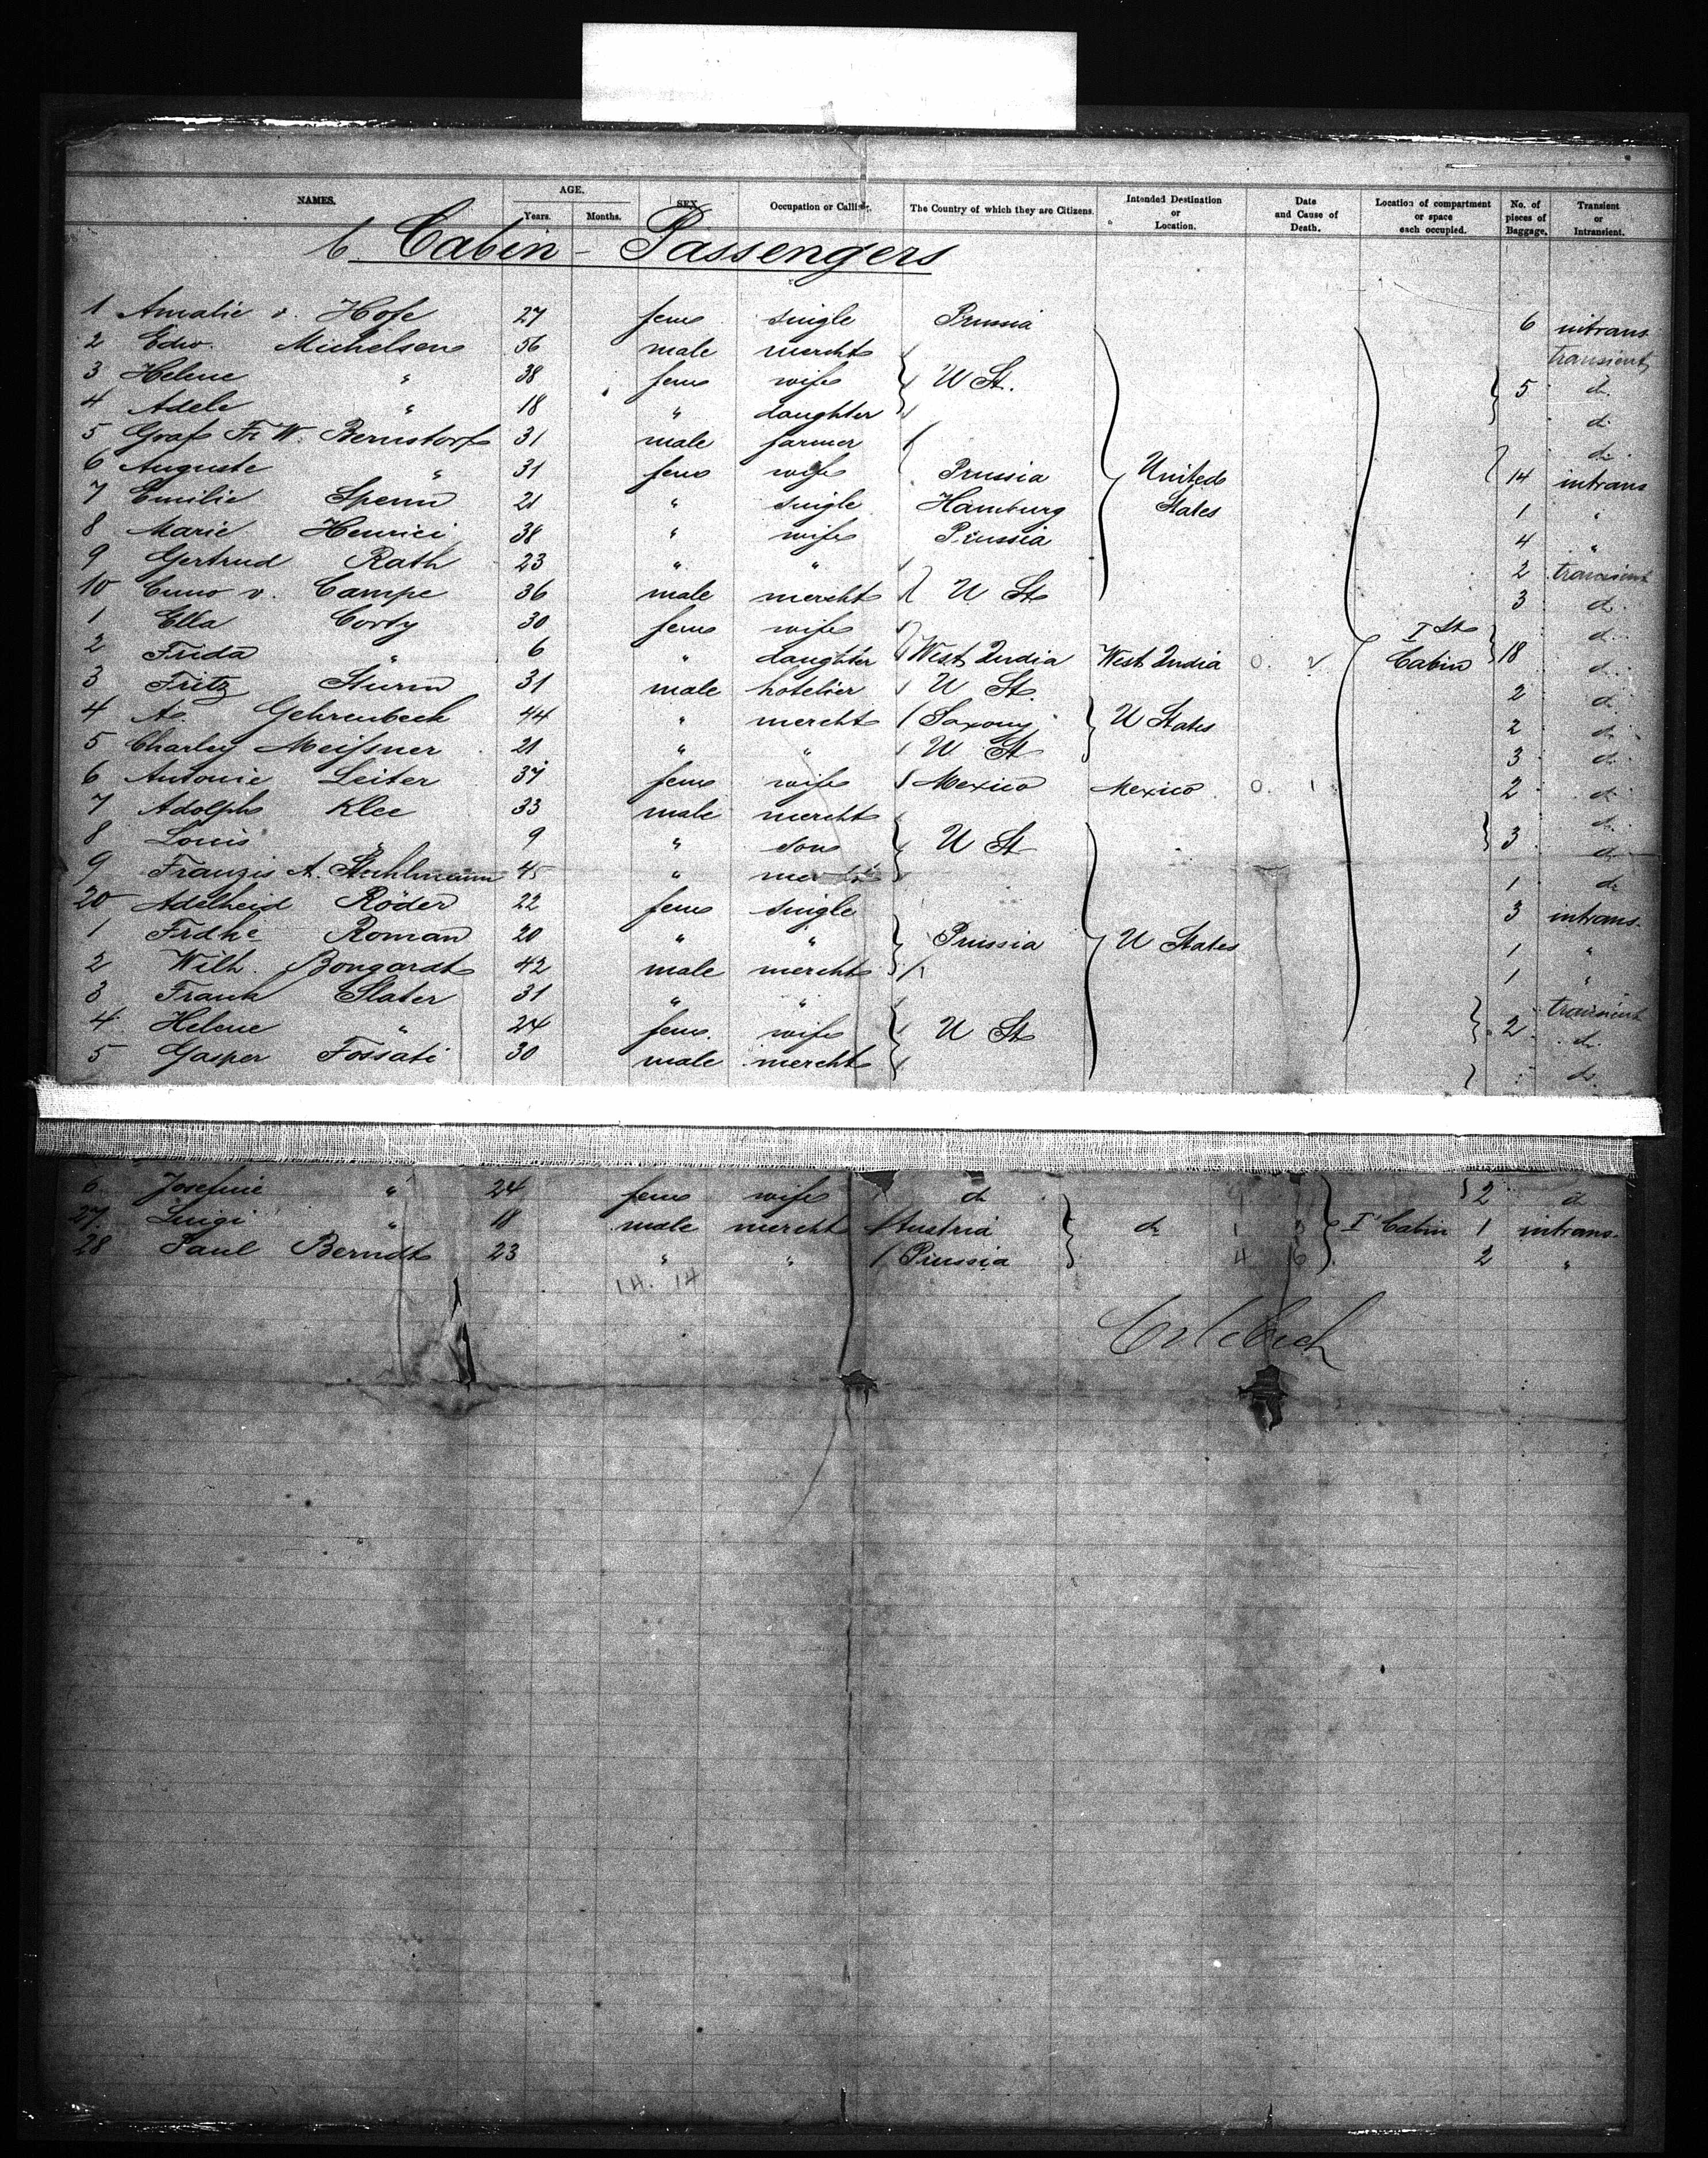 NAMES. AGE. Years. Months. SEX. Occupation or Calling. The Country of which they are Citizens. Intended Destination or Location. Date and Cause of Death. Location of compartment or space each occupied. No. of pieces of Baggage. Transient or Intransient.
Cabin - Passengers
1 Amalie v. Hofe 27 fem single Prussia 6 intrans
2 Edw. Michelsen 56 male mercht transient
3 Helene " 38 fem wife U St. 5 do.
4 Adele " 18 " daughter do.
5 Graf Fr. W. Bernstorf 31 male farmer do.
6 Auguste " 31 fem wife Prussia United 14 intrans
7 Emilie Spenn 21 " single Hamburg States 1 "
8 Marie Henrici 38 " wife Prussia 4 "
9 Gertrud Rath 23 " " 2 transient
10 Cuno v. Campe 36 male mercht U St 3 do.
1 Ella Corty 30 fem wife I St do.
2 Frida " 6 " daughter West India West India 0. Cabin 18 do.
3 Fritz Sturm 31 male hotelier U St. 2 do.
4 A. Gehrenbeck 44 " mercht Saxony U States 2 do.
5 Charley Meissner 21 " " U St 3 do.
6 Antonie Leiter 37 fem wife Mexico Mexico 0. 1 2 do.
7 Adolph Klee 33 male mercht do.
8 Louis " 9 " son U St 3 do.
9 Franzis A. Stuhlmann 45 " mercht 1 do
20 Adelheid Röder 22 fem single 3 intrans.
1 Frdke Roman 20 " " Prussia U States 1 "
2 Wilh. Bongardt 42 male mercht 1 "
3 Frank Slater 31 " " transient
4 Helene " 24 fem. wife U St 2 do.
5 Gasper Fossati 30 male mercht do.
6 Josefine " 24 fem wife do 2 do
27. Luigi " 18 male mercht Austria do 1 3 I Cabin 1 intrans.
28 Paul Berndt 23 " " Prussia 4 6 2 "
14. 14